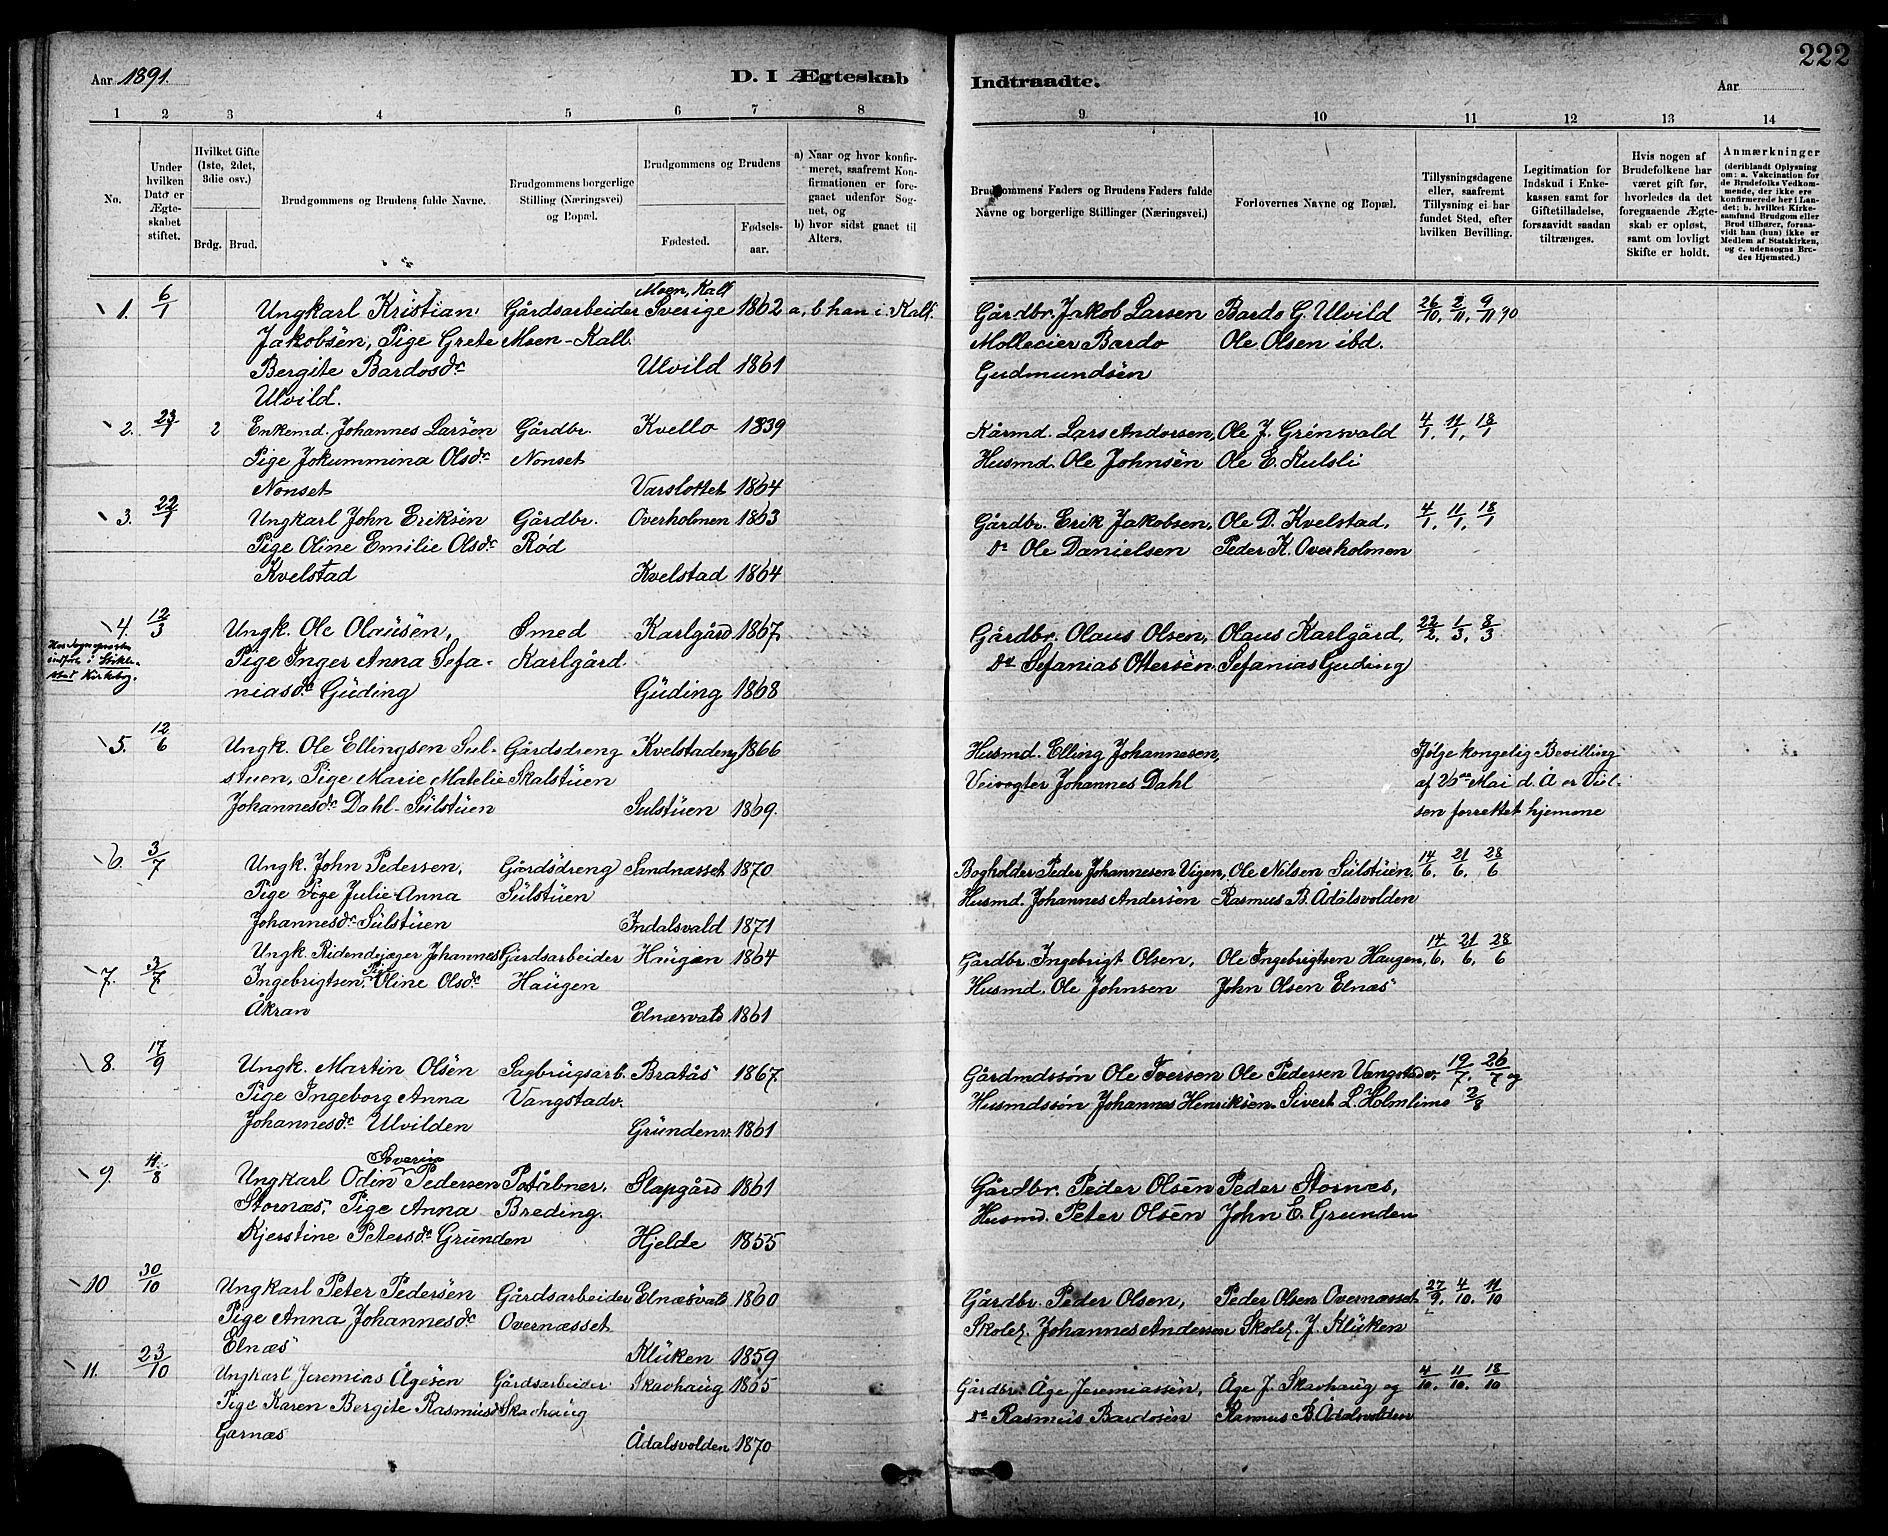 222
Aar 1891.
D. I Ægteskab
Indtraadte.
Aar
1 2 3 4 5 6 7 8 9 10 11 12 13 14
No.
Under hvilken Dato er Ægteskabet stiftet.
Hvilket Gifte (1ste, 2det, 3die osv.)
Brdg. Brud.
Brudgommens og Brudens fulde Navne.
Brudgommens borgerlige Stilling (Næringsvei) og Bopæl.
Brudgommens og Brudens
Fødested. Fødselsaar.
a) Naar og hvor konfirmeret, saafremt Konfirmationen er foregaaet udenfor Sognet, og
b) hvor sidst gaaet til Alters.
Brudgommens Faders og Brudens Faders fulde Navne og borgerlige Stillinger (Næringsvei.)
Forlovernes Navne og Bopæl.
Tillysningsdagene eller, saafremt Tillysning ei har fundet Sted, efter hvilken Bevilling.
Legitimation for Indskud i Enkekassen samt for Giftetilladelse, forsaavidt saadan tiltrænges.
Hvis nogen af Brudefolkene har været gift før, hvorledes da det foregaaende Ægteskab er opløst, samt om lovligt Skifte er holdt.
Anmærkninger (deriblandt Oplysning om: a. Vakcination for de Brudefolks Vedkommende, der ikke ere konfirmerede her i Landet; b. hvilket Kirkesamfund Brudgom eller Brud tilhører, forsaavidt han (hun) ikke er Medlem af Statskirken, og c. udensogns Brudes Hjemsted.)
Moen, Kall
1. 6/1 Ungkarl Kristian Gårdsarbeider Sverige 1862 a, b han i Kall. Gårdbr. Jakob Larsen Bardo G. Ulvild 26/10, 2/11, 9/11 90
Jakobsen, Pige Grete Moen-Kall. Mollecier Bardo Ole Olsen ibd.
Bergite Bardosdr Ulvild 1861 Gudmundsen
Ulvild.
2. 23/1 2 Enkemd. Johannes Larsen Gårdbr. Kvello 1839 Kårmd. Lars Andersen, Ole J. Grénsvald 4/1, 11/1, 18/1
Pige Jokummina Olsdr Nonset Husmd. Ole Johnsen Ole E. Kulsli
Nonset Varslottet 1864
3. 22/1 Ungkarl John Eriksen Gårdbr. Overholmen 1863 Gårdbr. Erik Jakobsen, Ole D. Kvelstad, 4/1, 11/1, 18/1
Pige Oline Emilie Olsdr Rød Do Ole Danielsen Peder K. Overholmen
Kvelstad Kvelstad 1864
4. 12/3 Ungk. Ole Olausen, Smed Karlgård 1867 Gårdbr. Olaus Olsen, Olaus Karlgård, 22/2, 1/3, 8/3
indført i Stiklestad Kirkebog.
Pige Inger Anna Sefa- Karlgård Do Sefanias Ottersen Sefanias Guding
niasdr Guding Guding 1868
5. 12/6 Ungk. Ole Ellingsen Sul- Gårdsdreng Kvelstadeng 1866 Husmd. Elling Johannesen, Ifølge kongelig Bevilling
stuen, Pige Marie Matelie Skalstuen Veivogter Johannes Dahl af 26de Mai d. Å er Viel-
Johannesdr Dahl-Sulstuen Sulstuen 1869. sen forrettet hjemme
6. 3/7 Ungk. John Pedersen, Gårdsdreng Sandnæsset 1870 Bogholder Peder Johannesen Vigen, Ole Nilsen Sulstuen, 14/6, 21/6, 28/6
Pige Pige Julie Anna Sulstuen Husmd. Johannes Andersen Rasmus B. Ådalsvolden
Johannesdr Sulstuen Indalsvald 1871
7. 3/7 Ungk. Ridendejæger Johannes Gårdsarbeider Haugen 1864 Gårdbr. Ingebrigt Olsen, Ole Ingebrigtsen Haugen, 14/6, 21/6, 28/6
Ingebrigtsen, Pige Oline Olsdr Haugen Husmd. Ole Johnsen John Olsen Elnæs
Åkran Elnæsvald 1861
8. 17/9 Ungk. Martin Olsen Sagbrugsarb. Bratås 1867. Gårdmdssøn Ole Iversen Ole Pedersen Vangstadv. 19/7, 26/7 og
Pige Ingeborg Anna Vangstadv. Husmdssøn Johannes Henriksen Sivert L. Holmlimo 2/8
Johannesdr Ulvilden Grundenv. 1861
9. 11/8 Ungkarl Odin Severin Pedersen Poståbner, Slapgård 1861 Gårdbr. Peder Olsen Peder Stornæs,
Stornæs, Pige Anna Breding. Husmd. Peter Olsen John E. Grunden
Kjerstine Petersdr Grunden Hjelde 1855
10 30/10 Ungkarl Peter Pedersen Gårdsarbeider Elnæsvald 1860 Gårdbr. Peder Olsen, Peder Olsen Overnæsset 27/9, 4/10, 11/10
Pige Anna Johannesdr Overnæsset Skolel. Johannes Andersen Skolel. J. Kluken
Elnæs Kluken 1859
11. 23/10 Ungkarl Jeremias Ågesen Gårdsarbeider Skavhaug 1865 Gårdbr. Åge Jeremiassen, Åge J. Skavhaug og 4/10, 11/10, 18/10
Pige Karen Bergite Rasmusdr Skavhaug Do Rasmus Bardosen Rasmus B. Ådalsvolden
Garnæs Ådalsvolden 1870